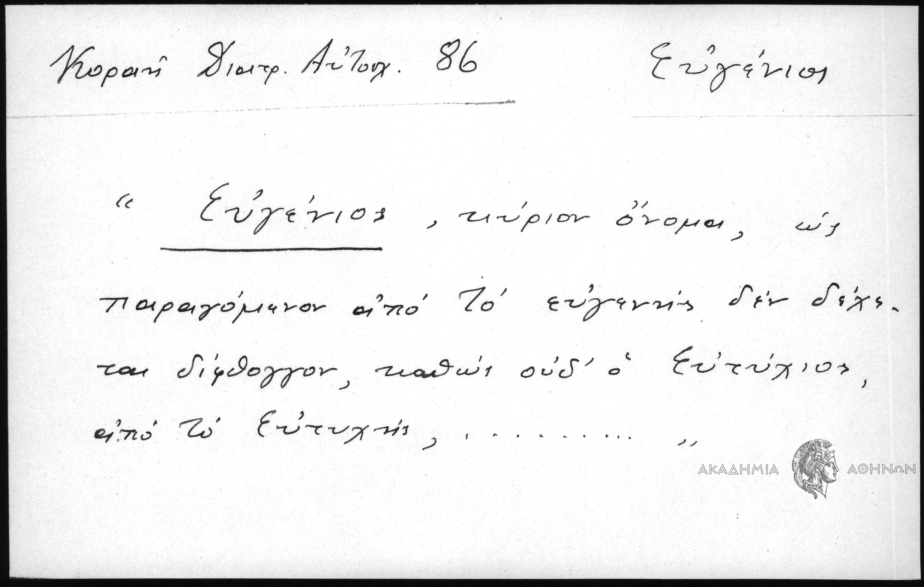 Κοραῆ Διατρ. Αὐτοσχ. 86 Εὐγένιος
“ Εὐγένιος, κύριον ὄνομα, ὡς
παραγόμενον ἀπό τό εὐγενής δέν δέχε-
ται δίφθογγον, καθώς οὐδ' ὁ Εὐτύχιος,
ἀπό τό Εὐτυχής, .......... „
ΑΚΑΔΗΜΙΑ ΑΘΗΝΩΝ